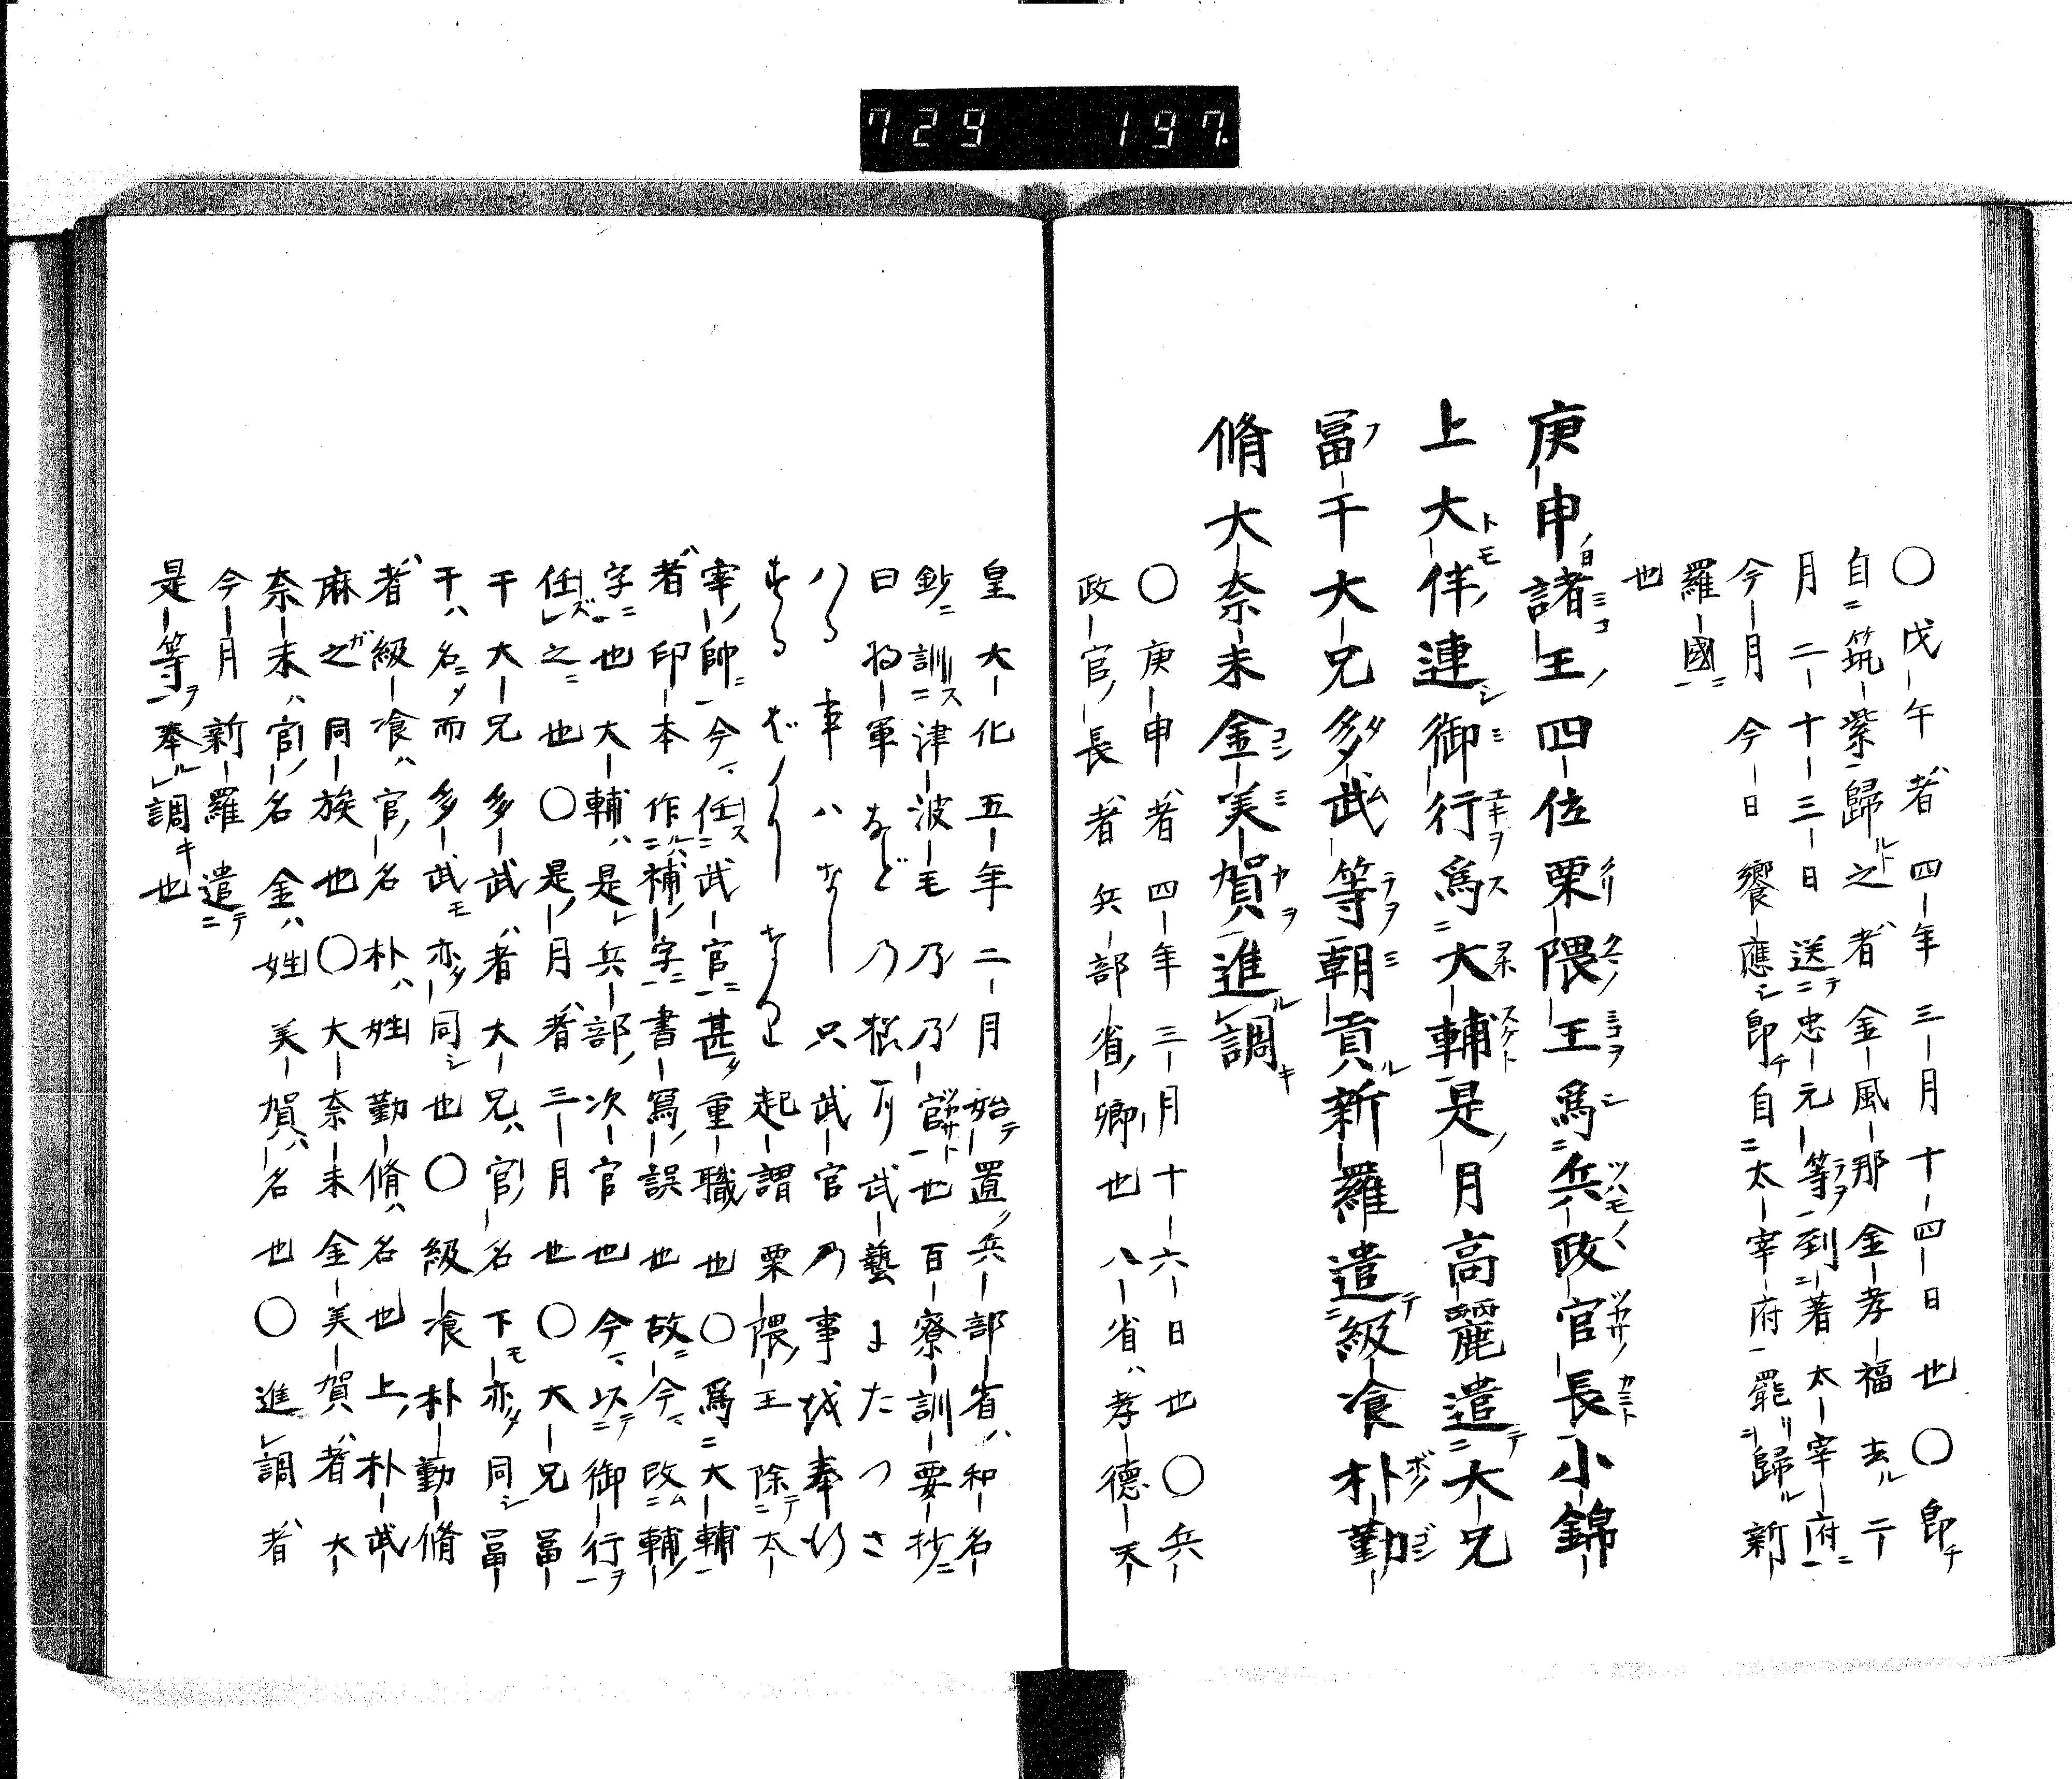 729 197.
〇戊午者四年三月十四日也〇即
自筑紫歸之者金風那金孝福去ル二
月二十三日送忠元等到著太宰府
今月今日饗應即自太宰府罷歸新
羅國
也
庚申諸王四位栗隈王爲兵政官長小錦
上大伴連御行爲大輔是月高麗遣大兄
冨干大兄多武等朝貢新羅遣級飡朴勤
脩大奈末金美賀進調
〇庚申者四年三月十六日也〇兵
政官長者兵部省卿也八省ハ孝德天
皇大化五年二月始置兵部省ハ和名
鈔訓津波毛乃乃官也百寮訓要抄
曰将軍などの様ニ武藝よたつさ
ハる事ハなし只武官の事越奉行
するばかりなり起謂栗隈王除太
宰帥今任武官甚重職也〇爲大輔
者印本作補字書寫誤也故今改輔
字也大輔ハ是兵部次官也今以御行
任之也〇是月者三月也〇大兄冨
干大兄多武者大兄ハ官名下モ亦同シ冨
干ハ名而多武モ亦同シ也〇級飡朴勤脩
者級飡ハ官名朴ハ姓勤脩ハ名也上朴武
麻之同族也〇大奈末金美賀者大
奈末ハ官名金ハ姓美賀ハ名也〇進調者
今月新羅遣
是等奉調也